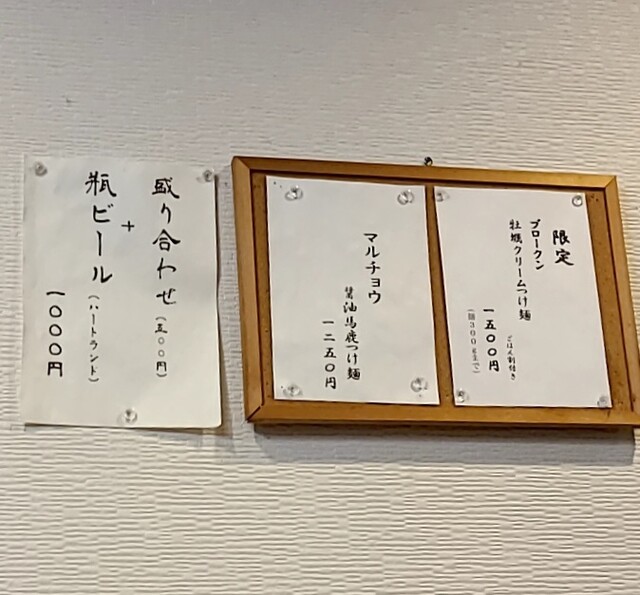 限定
ブロークン
牡蠣クリームつけ麺
ごはん割付き
一五〇〇円
(麺300gまで)
マルチョウ
醤油馬鹿つけ麺
一二五〇円
盛り合わせ(五〇〇円)
+
瓶ビール(ハートランド)
一〇〇〇円